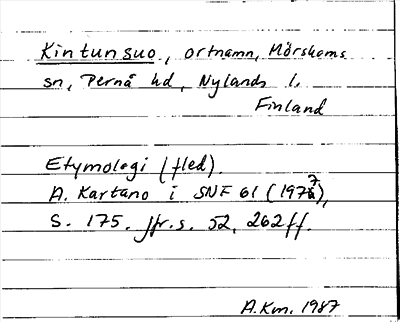 Kintunsuo, ortnamn, Mörskoms
sn, Pernå hd, Nylands l.
Finland
Etymologi (fled).
A. Kartano i SNF 61 (1977),
s. 175. Jfr. s. 52, 262 ff.
A.Km. 1987